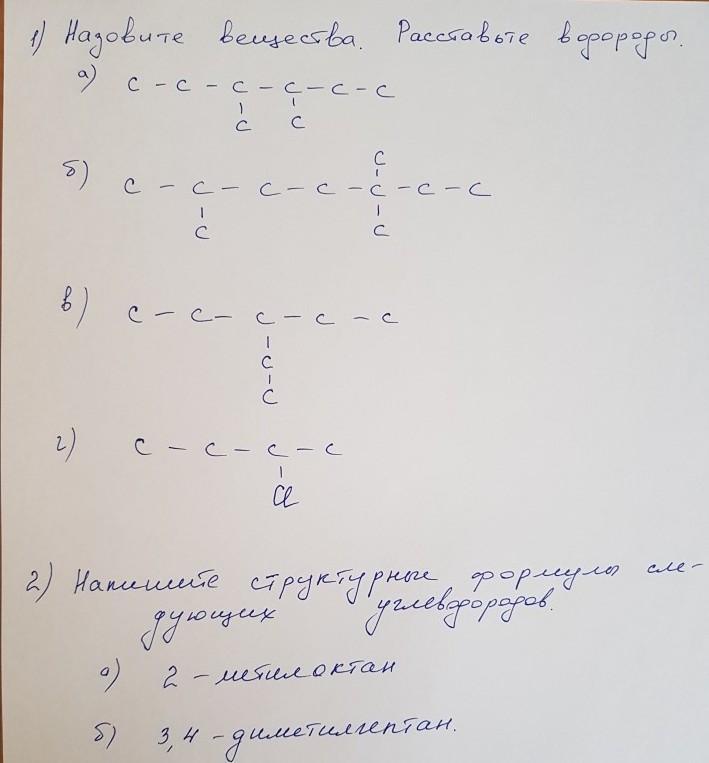 1) Назовите вещества. Расставьте водороды.
а) C - C - C - C - C - C
C C
C
б) C - C - C - C - C - C - C
C C
в) C - C - C - C - C
C
C
г) C - C - C - C
Cl
2) Напишите структурные формулы сле-
дующих углеводородов.
а) 2 - метилоктан
б) 3,4 - диметилгептан.